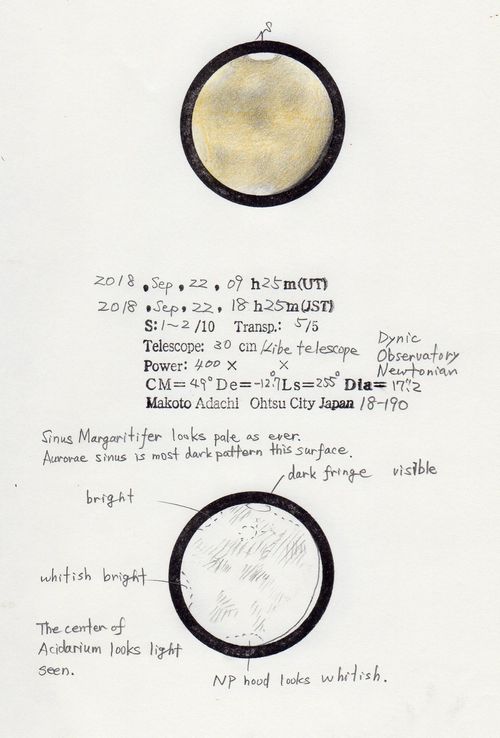 S
2018 . Sep . 22 . 09 h 25 m (UT)
2018 . Sep . 22 . 18 h 25 m (JST)
S: 1~2 /10 Transp.: 5/5
Telescope: 30 cm /Kibe telescope
Power: 400 × ×
Dynic
Observatory
Newtonian
CM= 49° De= -12.°7 Ls= 255° Dia= 17."2
Makoto Adachi Ohtsu City Japan 18-190
Sinus Margaritifer looks pale as ever.
Aurorae sinus is most dark pattern this surface.
dark fringe visible
bright
whitish bright
The center of
Acidarium looks light
seen.
NP hood looks whitish.